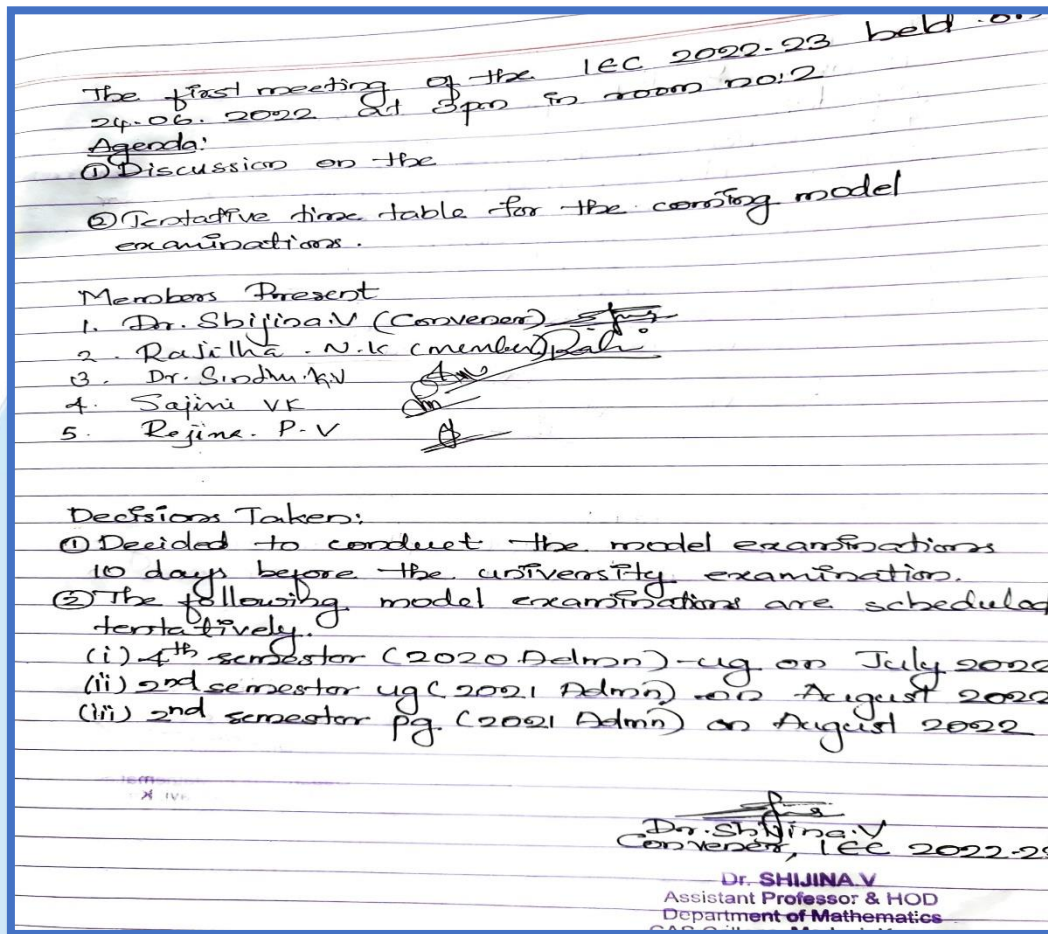 The first meeting of the IEC 2022-23 held
24.06.2022 at 3pm in room no:2
Agenda:
① Discussion on the
② Tentative time table for the coming model
examinations.
Members Present
1. Dr. Shijina.V (Convener)
2. Rajitha. N.K (member)
3. Dr. Sindhu.K.V
4. Sajini VK
5. Rejina. P-V
Decisions Taken:
① Decided to conduct the model examinations
10 days before the university examination.
② The following model examinations are scheduled
tentatively.
(i) 4th semester (2020 Admn)-ug on July 2022
(ii) 2nd semester ug (2021 Admn) on August 2022
(iii) 2nd semester pg. (2021 Admn) on August 2022
Dr. Shijina.V
Convener, IEC 2022-2
Dr. SHIJINA.V
Assistant Professor & HOD
Department of Mathematics